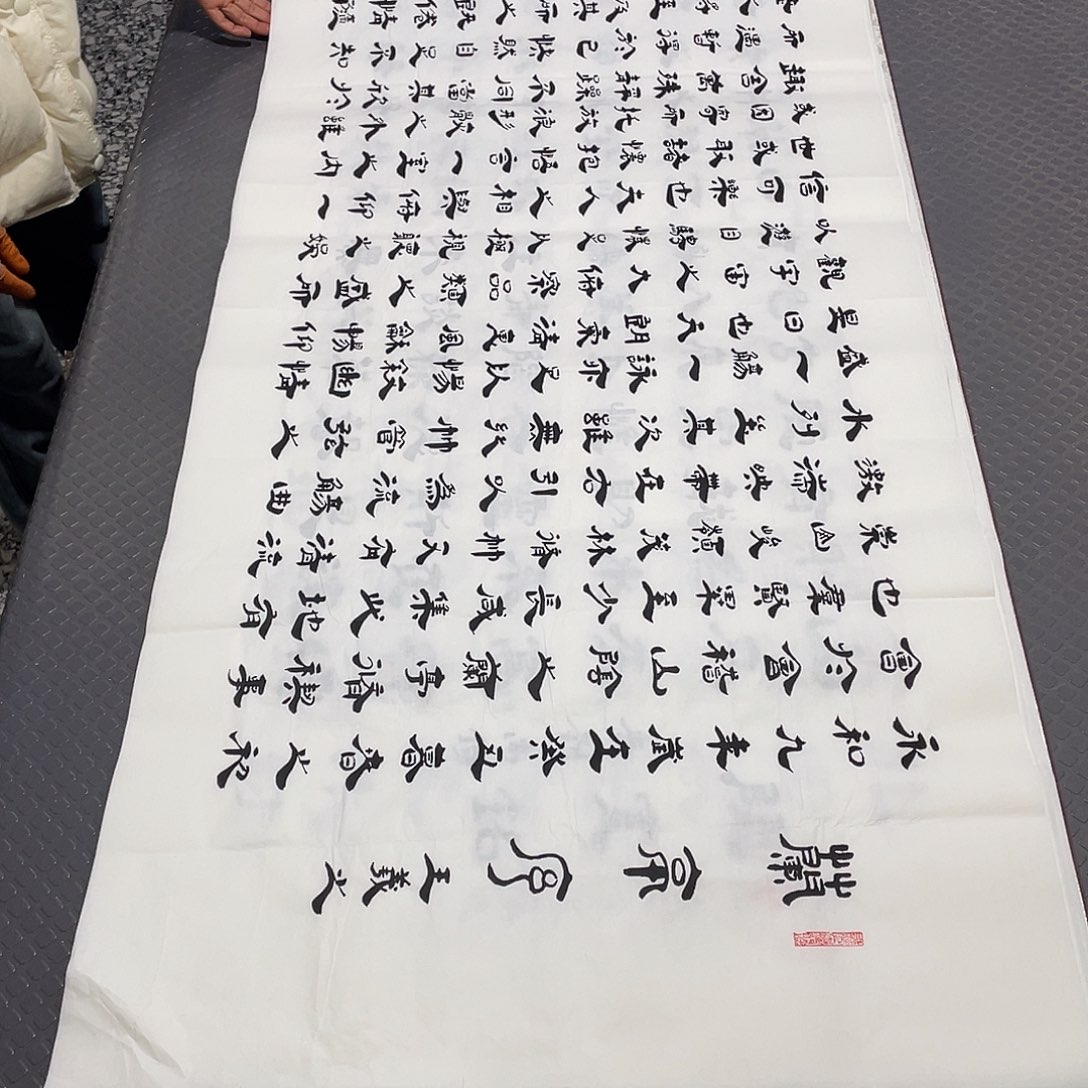 蘭亭序 王羲之
永和九年歲在癸丑暮春之初
會於會稽山陰之蘭亭脩禊事
也羣賢畢至少長咸集此地有
崇山峻領茂林脩竹又有清流
激湍映帶左右引以為流觴曲
水列坐其次雖無絲竹管弦之
盛一觴一詠亦足以暢敘幽情
是日也天朗氣清惠風和暢仰
觀宇宙之大俯察品類之盛所
以遊目騁懷足以極視聽之娛
信可樂也夫人之相與俯仰一
世或取諸懷抱悟言一室之內
或因寄所託放浪形骸之外雖
趣舍萬殊靜躁不同當其欣於
所遇暫得於己快然自足不知
之將至及其所之既倦情隨